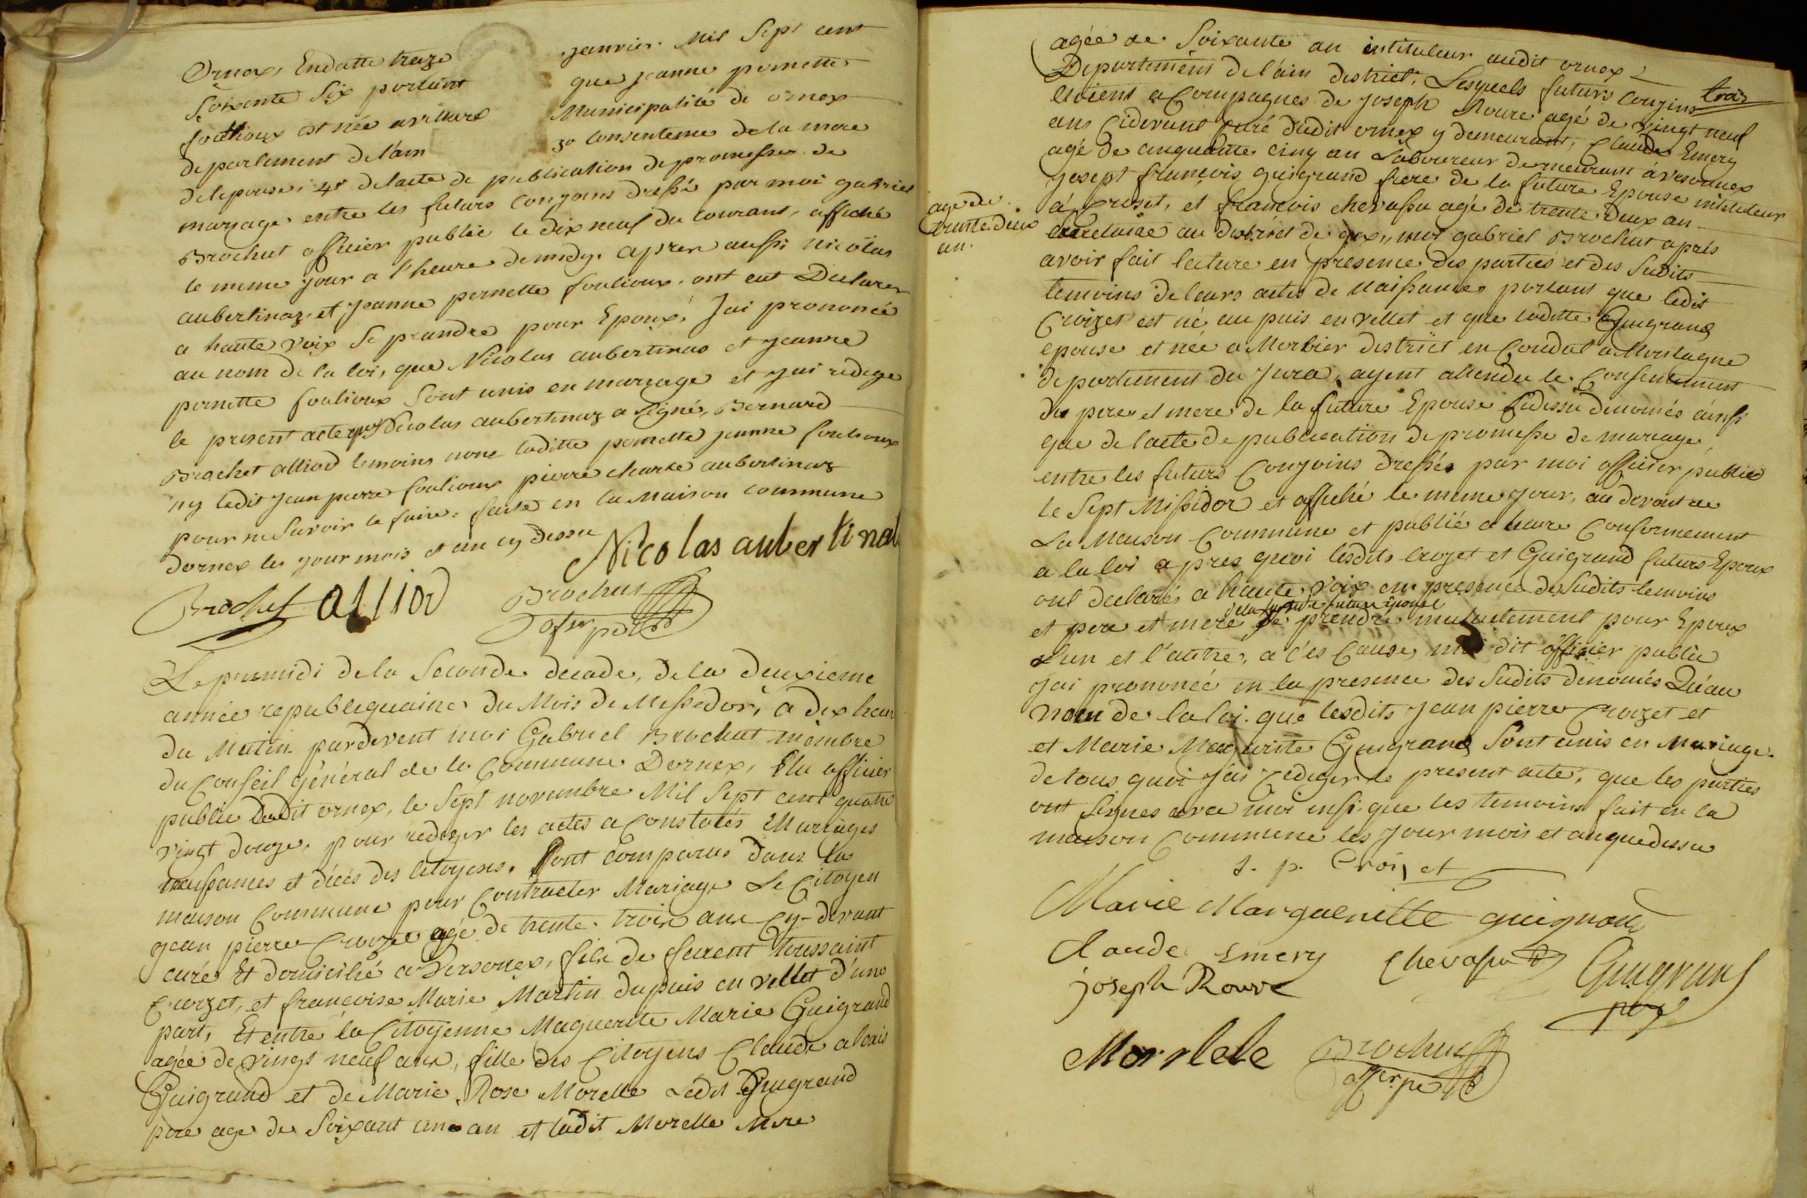 Ornex, Endatte traze janvier. Mil Sept cent
Soixente Six portant que jeanne pernette
foulioux est née arriture Municipalité de ornex
departement de lain 3o Consenteme de la mere
de lepouse; 4o de lacte de publication de promesse de
mariage entre les futurs Conjoins dressé par moi gabriel
Brochut officier public le dix neuf du courant, affiché
le meme jour a l'heure de midy. apres aussi nicolas
aubertinaz, et jeanne pernette foulioux, ont eut Declarer
a haute voix Se prandre pour Epoux, Jai prononcé
au nom de la loi, que Nicolas aubertinas et jeanne
pernette foulioux Sont unis en mariage et jai redige
le present acte Nicolas aubertinaz a Signé, Bernard
Brochet alliod temoins nonc laditte pernette jeanne foulioux
ny ledit jean pierre foulioux pierre charle aubertinaz
pour ne Savoir le faire. faite en la Maison commune
dornex les jour mois et an cy dessu
Nicolas aubertinat
Brochet alliod Brochut
ofier pc
Le primidi de la Seconde decade, de la deuxieme
année republiquaine du Mois de Messidor, à dix heure
du Matin pardevent moi Gabriel Brochut membre
du Conseil général de la Commune Dornex, Elu officier
public dudit ornex, le Sept novembre Mil Sept cent quatre
vingt douze, pour rediger les actes a Constatés Mariages
naissances et décés des Citoyens. Sont comparus dans la
maison Commune pour Contracter Mariage Le Citoyen
jean pierre Croizet agé de trente trois ans Cy-devant
curé Et domicilié a Versonex, fils de feuent toussaint
Croizet, et francoise Marie Martin du puis en vellet d'une
part, Et entre la Citoyenne Maguerite Marie Guigrand
agée de vingt neuf ans, fille des Citoyens Claude alexis
Guigrand et de Marie Rose Morelle Ledit Guigrand
pere age de Soixant un an et ladit Morelle Mere
agée de Soixante an intituleur audit ornex
Departement de l'ain district, Lesquels futurs Conjoins
trois
etoient a Compagnes de joseph Roure agé de vingt neuf
ans Cidevant curé dudit ornex y demeurant, Claude Emery
agé de cinquante cinq an Laboureur demeurant à versonnex
joseph françois guigrand frere de la future Epouse intituleur
age de
trante deux
an
à Croset, et francois chevassu agé de trente deux an
secretaire au district de gex, moi gabriel Brochut apres
avoir fait lecture en presence des parties et des Sudits
temoins de leurs actes de Naissances portant que ledit
Croizet est né au puis en vellet et que laditte Guigrand
epouse et née a Morbier district en Condat a Montagne
departement du jura, ayent attendu le Consentement
du pere et mere de la future Epouse Cidessu denomés ainsi
que de lacte de publication de promesse de mariage
entre les futurs Conjoins dressés par moi officier public
le Sept Missidor et affiché le meme jour, au devant de
La Maison Commune et publié a haure Conformement
a la loi apres quoi lesdits Croizet et Guigrand futurs Epoux
ont declaré a haute voix en presence deSudits temoins
de la susdite future epouse
et pere et mere se prendre mutuelement pour Epoux
Lun et l'autre, à ces Cause, moi dit officier public
jai prononcé en la presence des Sudits denomés Qu'au
nom de la loi que lesdits jean pierre Croizet et
et Marie Marguerite Guigrand Sont unis en Mariage.
de tous quoi jai rediger le present acte, que les parties
ont Signes avec moi insi que les temoins fait en la
maison Commune les jour mois et an que dessu
J. p. Croizet
Marie Marguenitte guignan
Claude Emery Chevassu Guigrand
joseph Roure
Morelele Brochut
offier pc